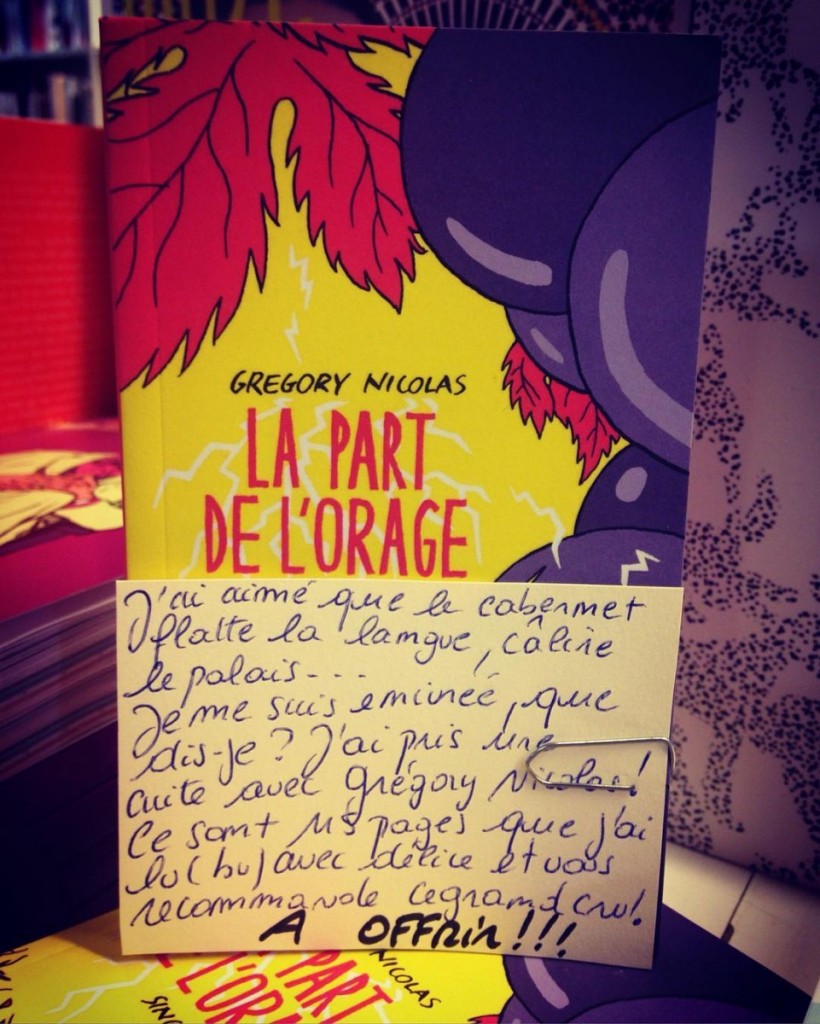 GREGORY NICOLAS
LA PART
DE L'ORAGE
J'ai aimé que le cabernet
flatte la langue, câline
le palais...
Je me suis eminée, que
dis-je? J'ai pris une
cuite avec Grégory Nicolas!
Ce sont 115 pages que j'ai
lu (bu) avec délice et vous
recommande ce grand cru!
A OFFRIR!!!
NICOLAS
PART
L'ORA